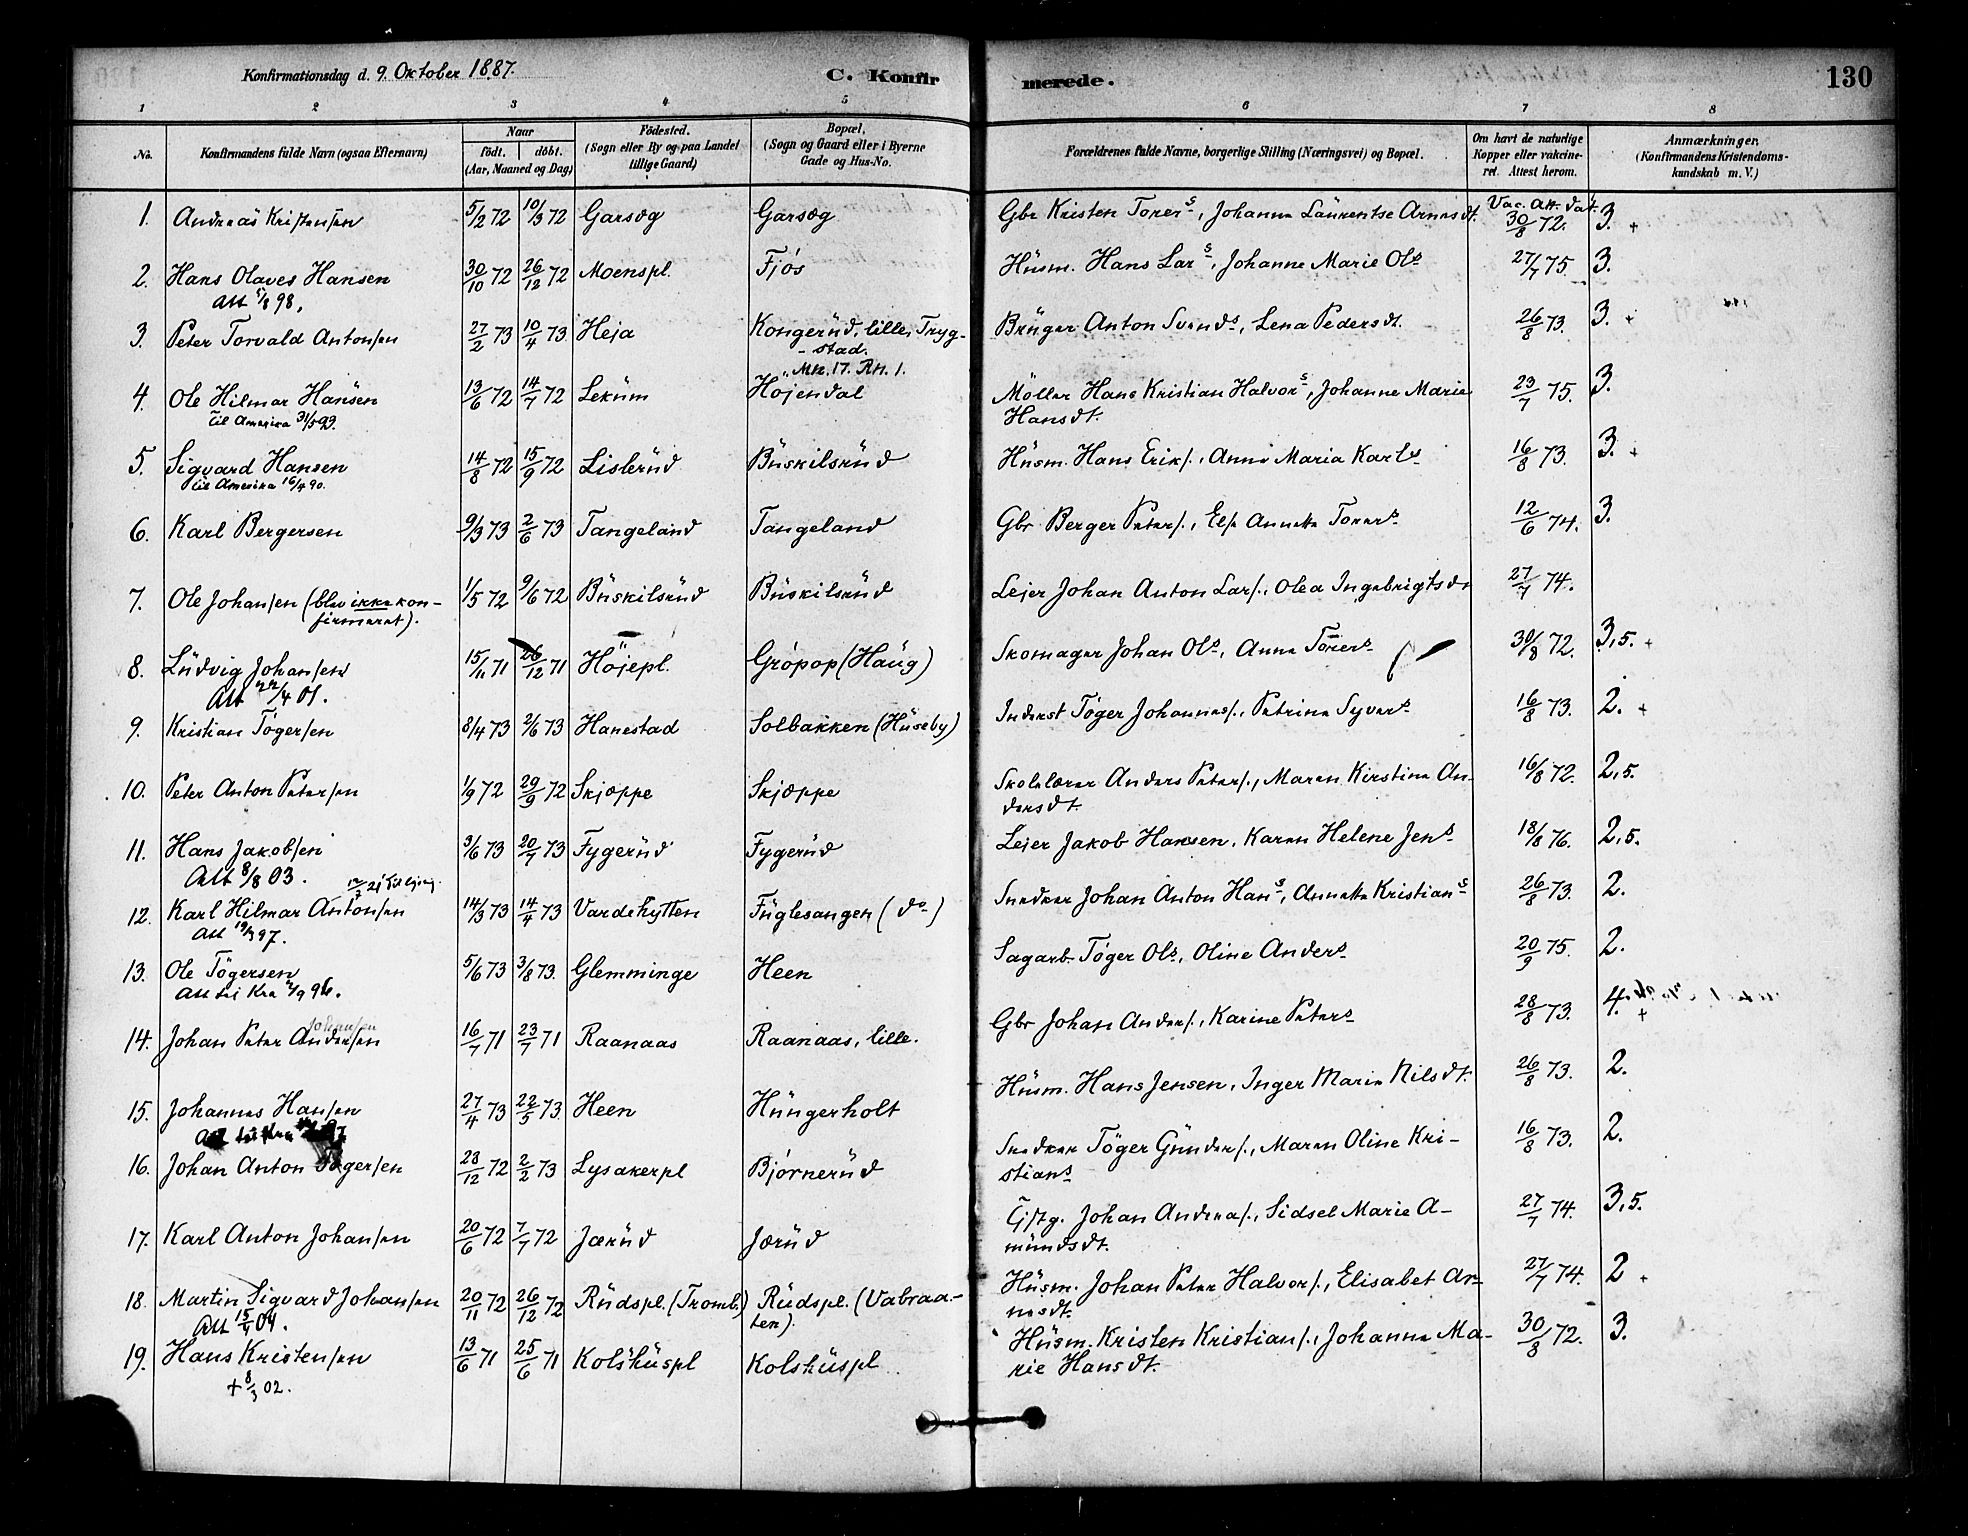 Konfirmationsdag d. 9. Oktober 1887. C. Konfirmerede. 130
1 2 3 4 5 6 7 8
No. Konfirmandens fulde Navn (ogsaa Efternavn) Naar födt. döbt. (Aar, Maaned og Dag) Födested. (Sogn eller By og paa Landet tillige Gaard) Bopæl. (Sogn og Gaard eller i Byerne Gade og Hus-No. Forældrenes fulde Navne, borgerlige Stilling (Næringsvei) og Bopæl. Om havt de naturlige Kopper eller vakcineret. Attest herom. Anmærkninger. (Konfirmandens Kristendomskundskab m. V.)
1. Andreas Kristensen 5/2 72 10/3 72 Garseg Garseg Gbr Kristen Torers, Johanne Laurentse Arnesdt. Vac. Att. dat. 30/8 72. 3. +
2. Hans Olaves Hansen 30/10 72 26/12 72 Moenspl. Fjös Husm. Hans Lars, Johanne Marie Ols 27/7 75. 3.
Att 1/8 98.
3. Peter Torvald Antonsen 27/2 73 10/4 73 Heja Kongerud, lille, Tryg- Bruger Anton Svends, Lena Pedersdt. 26/8 73. 3. +
- stad.
Mtr. 17. Rtt. 1.
4. Ole Hilmar Hansen 13/6 72 14/7 72 Lekum Höjendal Möller Hans Kristian Halvors, Johanne Marie 23/7 75. 3.
til Amerika 31/5 93. Hansdt.
5. Sigvard Hansen 14/8 72 15/9 72 Lislerud Buskilsrud Husm. Hans Eriks., Anne Maria Karls 16/8 73. 3. +
til Amerika 16/4 90.
6. Karl Bergersen 9/3 73 2/6 73 Tangeland Tangeland Gbr Berger Peters., Else Annette Torers 12/6 74. 3.
7. Ole Johansen (blev ikke kon- 1/5 72 9/6 72 Buskilsrud Buskilsrud Lejer Johan Anton Lars., Olea Ingebrigtsdt 27/7 74.
firmeret).
8. Ludvig Johansen 15/11 71 26/12 71 Höjepl. Gröpop (Haug) Skomager Johan Ols, Anne Torers 30/8 72. 3,5. +
Att 22/4 01.
9. Kristian Tögersen 8/4 73 2/6 73 Hanestad Solbakken (Huseby) Inderst Töger Johannes., Petrine Syvers 16/8 73. 2. +
10. Peter Anton Petersen 1/9 72 29/9 72 Skjöppe Skjöppe Skolelærer Anders Peters., Maren Kirstine An- 16/8 72. 2,5.
dersdt.
11. Hans Jakobsen 3/6 73 20/7 73 Fygerud Fygerud Lejer Jakob Hansen, Karen Helene Jens 18/8 76. 2,5.
Att 8/8 03.
12. Karl Hilmar Antonsen 14/3 73 14/4 73 Vardehytten Fuglesangen (do) Snedker Johan Anton Hans, Annette Kristians 26/8 73. 2.
Att 19/3 97.
13. Ole Tögersen 5/6 73 3/8 73. Glemminge Heen Sagarb. Töger Ols, Oline Anders 20/9 75. 2.
Att til Kra 2/9 96.
Johansen
14. Johan Peter Andersen 16/7 71 23/7 71 Raanaas Raanaas, lille. Gbr Johan Anders., Karine Peters 28/8 73. 4. +
15. Johannes Hansen 27/4 73 22/5 73. Heen Hungerholt Husm. Hans Jensen, Inger Marie Nilsdt. 26/8 73. 2.
Att til Kra
16. Johan Anton Tögersen 28/12 72 2/2 73 Lysakerpl Björnerud Snedker Töger Gunders., Maren Oline Kri- 16/8 73. 2.
stians
17. Karl Anton Johansen 20/6 72 7/7 72 Jærud Jærud Gjstg. Johan Andreas., Sidsel Marie A- 27/7 74. 3,5.
mundsdt.
18. Martin Sigvard Johansen 20/11 72 26/12 72 Rudspl. (Tromb.) Rudspl. (Vabraa- Husm. Johan Peter Halvors., Elisabet Ar- 27/7 74. 2 +
Att 15/4 04. ten). nesdt.
19. Hans Kristensen 13/6 71 25/6 71 Kolshuspl Kolshuspl Husm. Kristen Kristians., Johanne Ma- 30/8 72. 3.
+ 8/3 02. rie Hansdt.